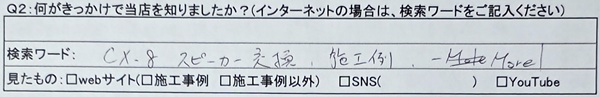 Q2:何がきっかけで当店を知りましたか?(インターネットの場合は、検索ワードをご記入ください)
検索ワード: CX-8 スピーカー交換、施工例、 More
見たもの:□webサイト(□施工事例 □施工事例以外) □SNS( ) □YouTube